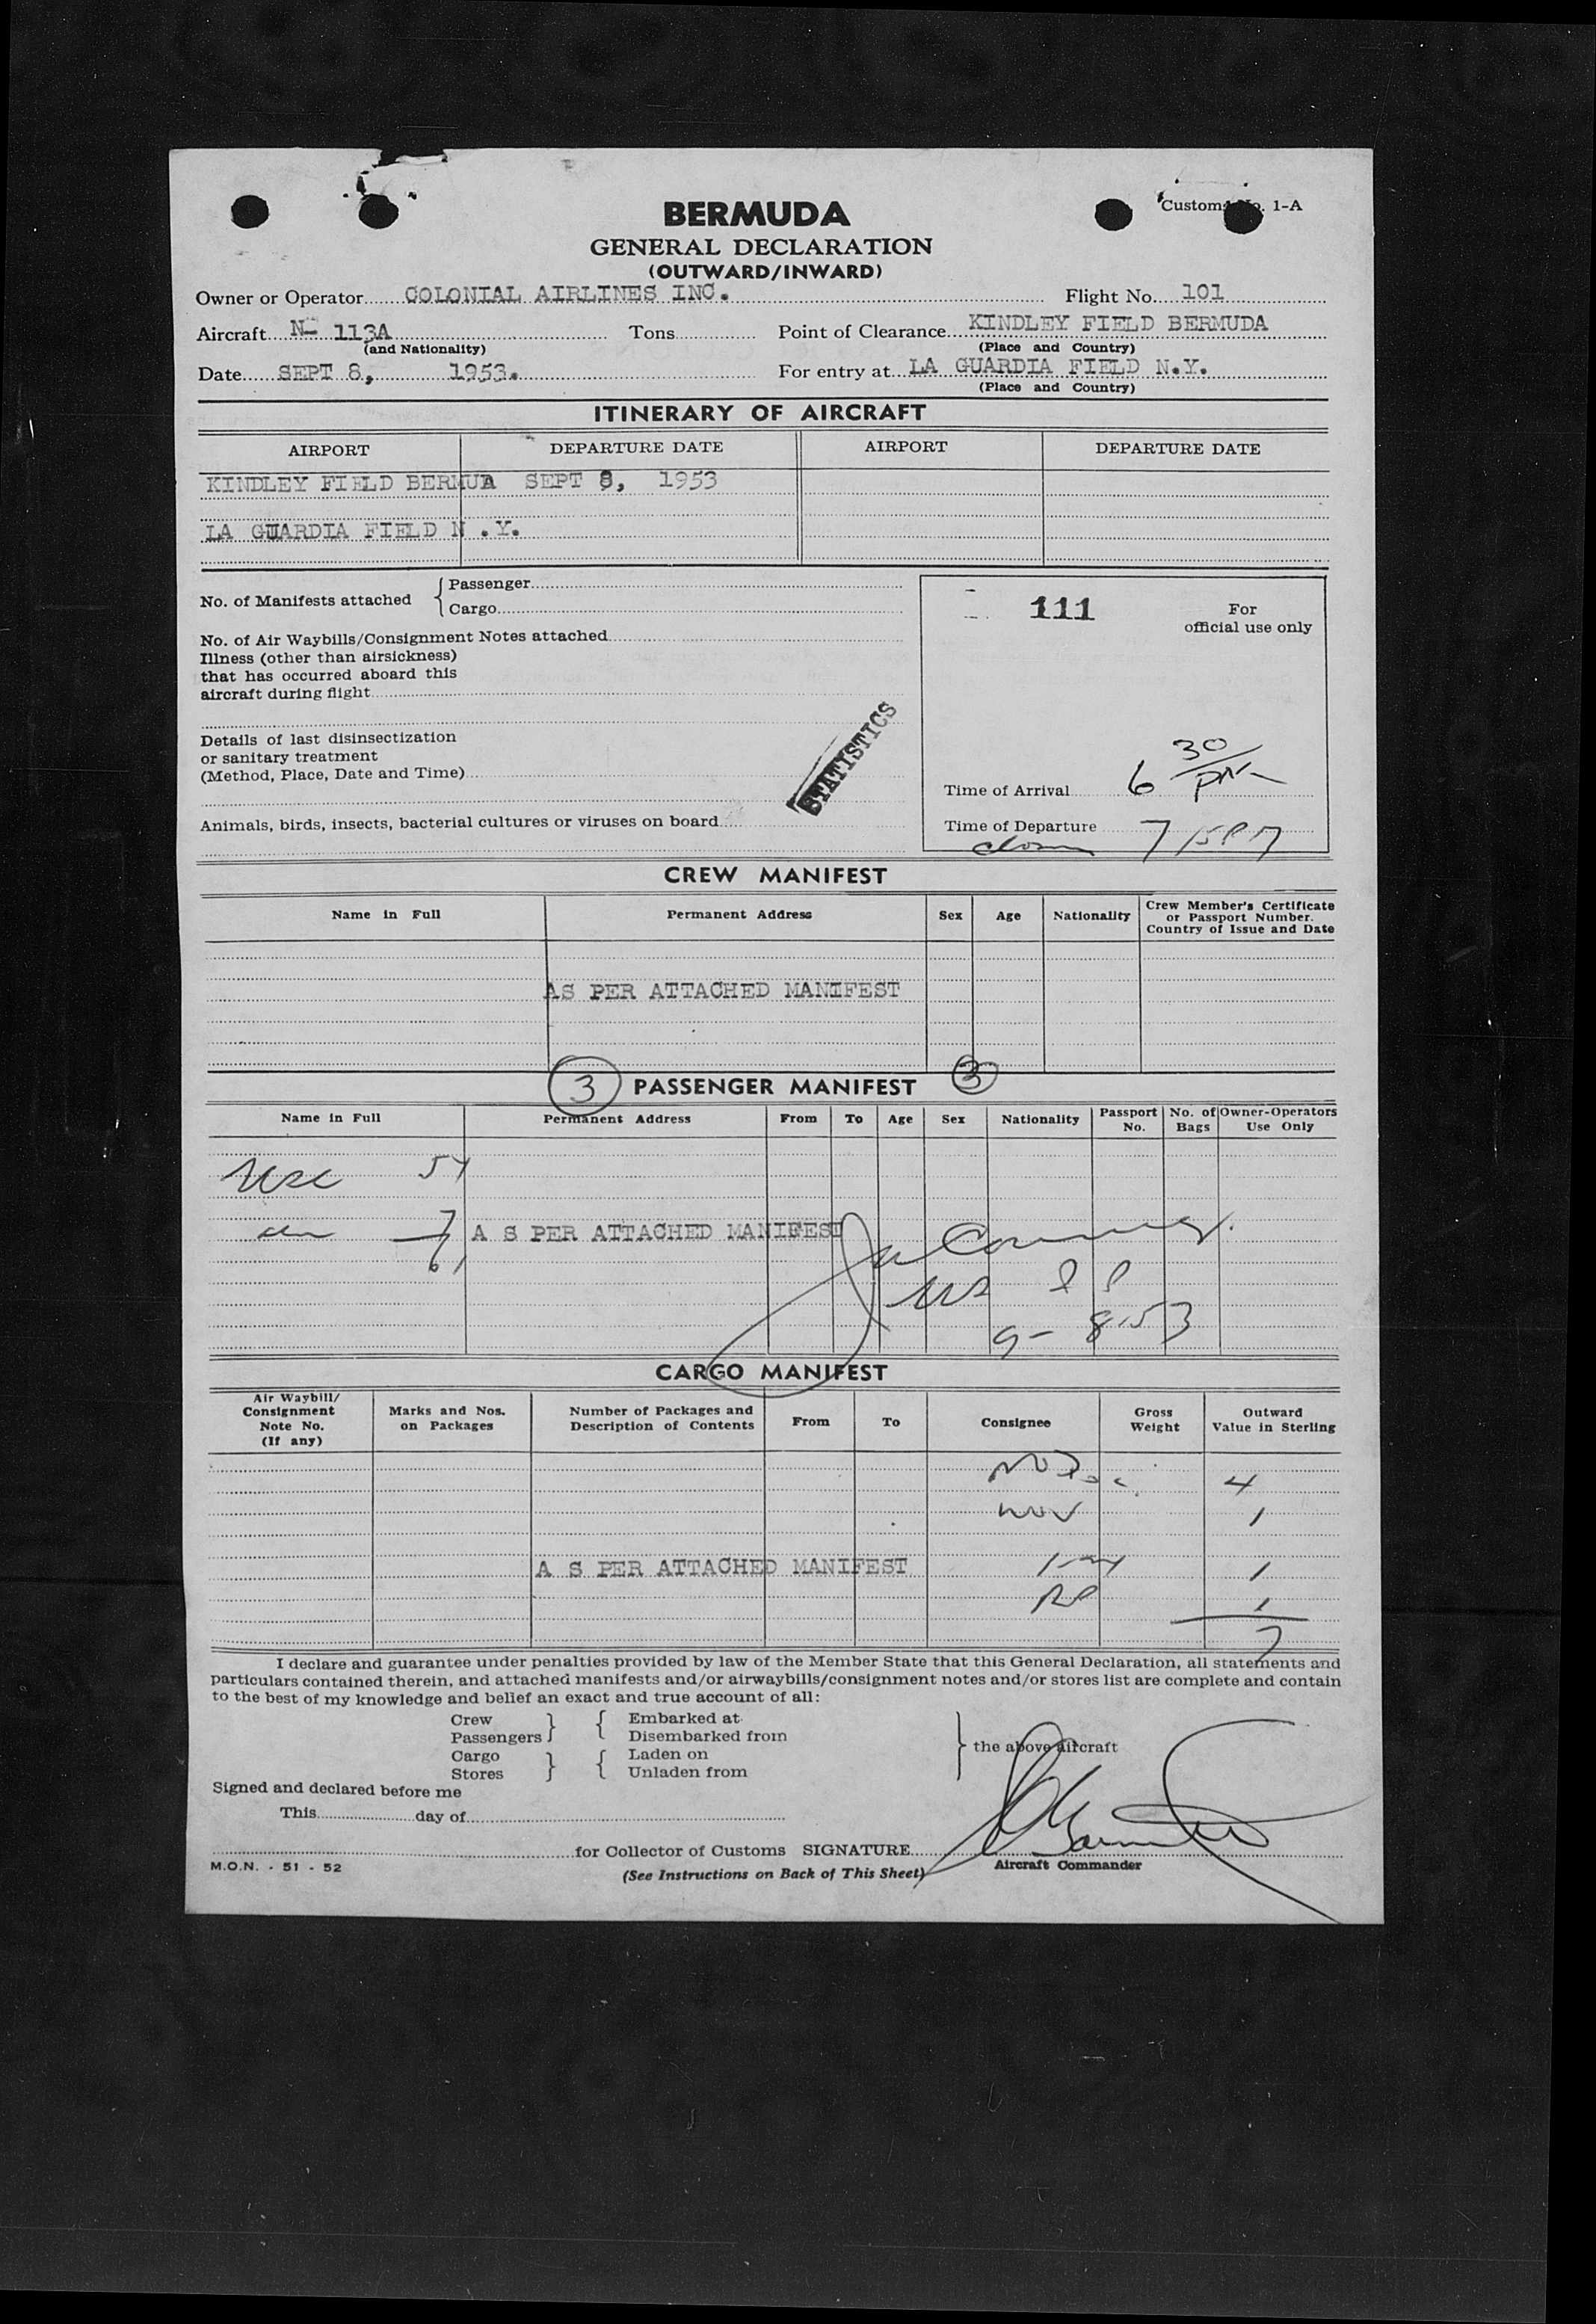 Customs No. 1-A
BERMUDA
GENERAL DECLARATION
(OUTWARD/INWARD)
Owner or Operator COLONIAL AIRLINES INC. Flight No. 101
Aircraft N- 113A Tons Point of Clearance KINDLEY FIELD BERMUDA
(and Nationality) (Place and Country)
Date SEPT 8, 1953. For entry at LA GUARDIA FIELD N.Y.
(Place and Country)
ITINERARY OF AIRCRAFT
AIRPORT DEPARTURE DATE AIRPORT DEPARTURE DATE
KINDLEY FIELD BERMUDA SEPT 8, 1953
LA GUARDIA FIELD N .Y.
No. of Manifests attached { Passenger
Cargo
111 For
official use only
No. of Air Waybills/Consignment Notes attached
Illness (other than airsickness)
that has occurred aboard this
aircraft during flight
STATISTICS
Details of last disinsectization
or sanitary treatment
(Method, Place, Date and Time)
Time of Arrival 6 30 PM
Animals, birds, insects, bacterial cultures or viruses on board
Time of Departure 7 15 PM
CREW MANIFEST
Name in Full Permanent Address Sex Age Nationality Crew Member's Certificate
or Passport Number.
Country of Issue and Date
AS PER ATTACHED MANIFEST
3 PASSENGER MANIFEST 3
Name in Full Permanent Address From To Age Sex Nationality Passport No. No. of Bags Owner-Operators Use Only
USC 54
7 A S PER ATTACHED MANIFEST
61
9- 8-53
CARGO MANIFEST
Air Waybill/ Consignment Note No. (If any) Marks and Nos. on Packages Number of Packages and Description of Contents From To Consignee Gross Weight Outward Value in Sterling
4
1
A S PER ATTACHED MANIFEST 1
RP 1
7
I declare and guarantee under penalties provided by law of the Member State that this General Declaration, all statements and
particulars contained therein, and attached manifests and/or airwaybills/consignment notes and/or stores list are complete and contain
to the best of my knowledge and belief an exact and true account of all:
Crew } { Embarked at
Passengers Disembarked from
} the above aircraft
Cargo } { Laden on
Stores Unladen from
Signed and declared before me
This day of
for Collector of Customs SIGNATURE
M.O.N. - 51 - 52 Aircraft Commander
(See Instructions on Back of This Sheet)